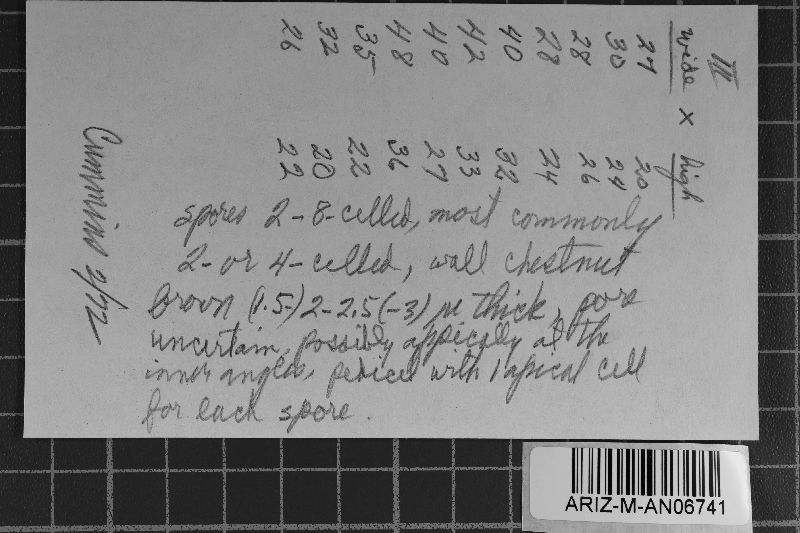 III
wide × high
27 20
30 24
28 26
28 24
40 32
42 33
40 27
48 36
35 22
32 20
26 22
spores 2-8-celled, most commonly
2- or 4-celled, wall chestnut
brown (1.5-)2-2.5(-3) µ thick, pore
uncertain, possibly appically at the
inner angles, pedicel with 1 apical cell
for each spore.
Cummins 2/72
ARIZ-M-AN06741